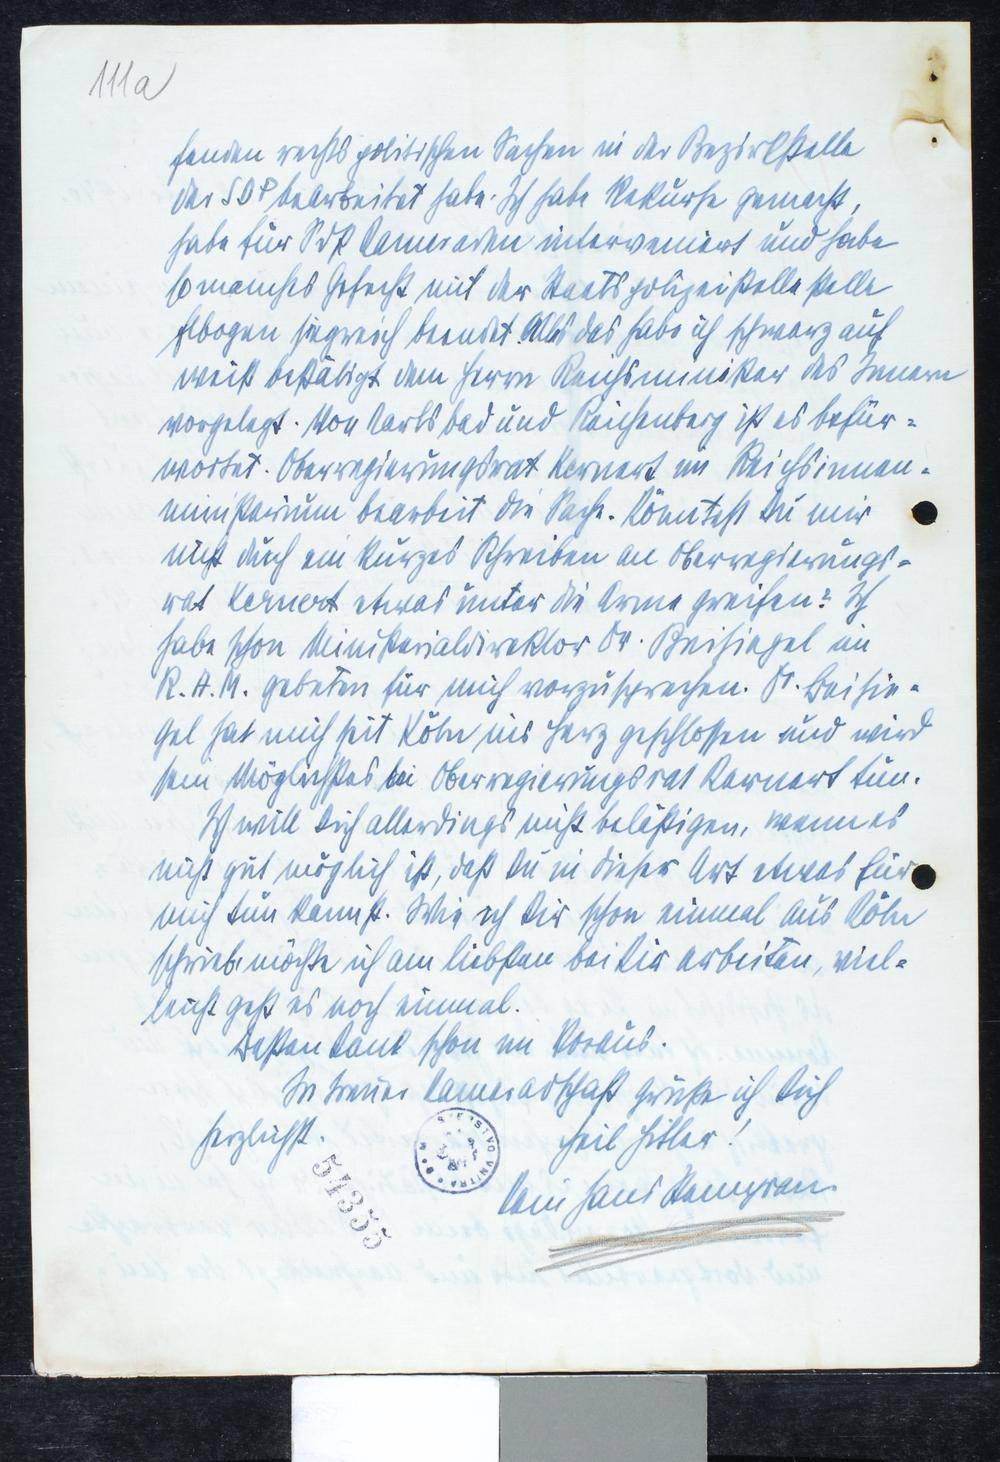 111a
fenden rechtspolitischen Sachen in der Bezirksstelle
der SDP bearbeitet habe. Ich habe Rekurse gemacht,
habe für SdP Kameraden interveniert und habe
so manches Gefecht mit der Staatspolizeistelle stelle
Elbogen siegreich beendet. Alles das habe ich schwarz auf
weiß bestätigt dem Herrn Reichsminister des Innern
vorgelegt. Von Karlsbad und Reichenberg ist es befür=
wortet. Oberregierungsrat Kernert im Reichsinnen=
ministerium bearbeit die Sache. Könntest Du mir
nicht duch ein kurzes Schreiben an Oberregierungs=
rat Kernert etwas unter die Arme greifen? Ich
habe schon Ministerialdirektor Dr. Beisiegel im
R.A.M. gebeten für mich vorzusprechen. Dr. Beisie=
gel hat mich seit Köln ins Herz geschlossen und wird
sein Möglichstes bei Oberregierungsrat Kernert tun.
Ich will Dich allerdings nicht belästigen, wenn es
nicht gut möglich ist, daß Du in dieser Art etwas für
mich tun kannst. Wie ich Dir schon einmal aus Köln
schrieb, möchte ich am liebsten bei Dir arbeiten, viel=
leicht geht es noch einmal.
Besten Dank schon im Voraus.
In treuer Kameradschaft grüße ich Dich
herzlichst.
Heil Hitler!
Dein Hans
54355